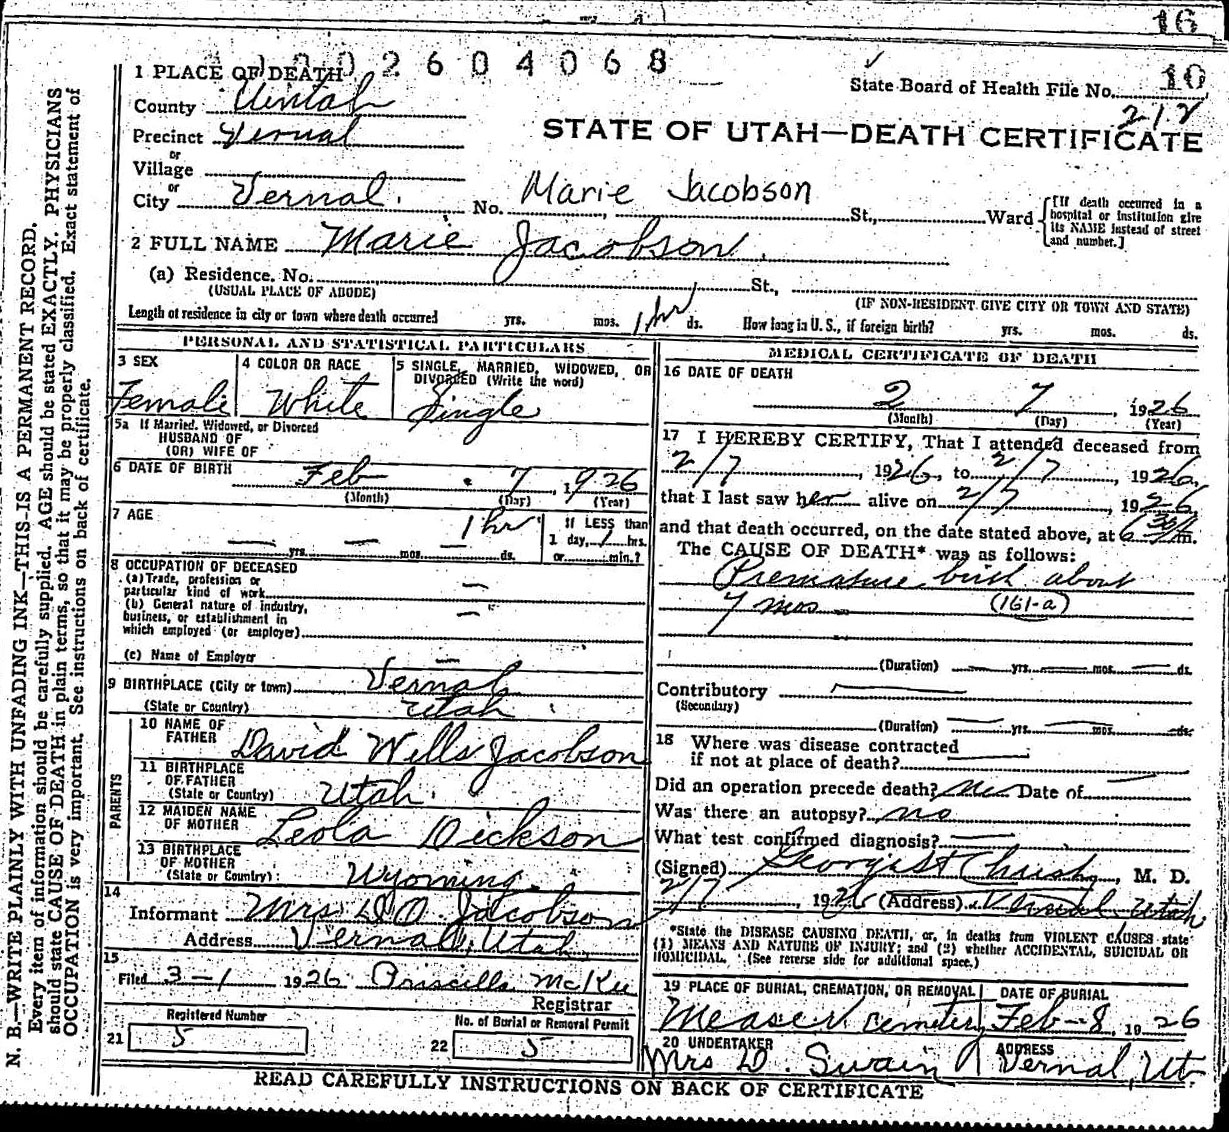 16
1 PLACE OF DEATH 2604068
State Board of Health File No. 10
County Uintah
212
Precinct Vernal
STATE OF UTAH—DEATH CERTIFICATE
or
Village
or
City Vernal. No. Marie Jacobson St., Ward
[If death occurred in a
hospital or institution give
its NAME instead of street
and number.]
2 FULL NAME Marie Jacobson.
(a) Residence. No. St.,
(USUAL PLACE OF ABODE) (IF NON-RESIDENT GIVE CITY OR TOWN AND STATE)
Length of residence in city or town where death occurred yrs. mos. 1 hr ds. How long in U. S., if foreign birth? yrs. mos. ds.
PERSONAL AND STATISTICAL PARTICULARS
3 SEX 4 COLOR OR RACE 5 SINGLE, MARRIED, WIDOWED, OR
DIVORCED (Write the word)
Female White Single
5a If Married, Widowed, or Divorced
HUSBAND OF
(OR) WIFE OF
6 DATE OF BIRTH Feb 7, 1926
(Month) (Day) (Year)
7 AGE 1 hr If LESS than
— yrs. — mos. ds. 1 day, 1 hrs.
or min.?
8 OCCUPATION OF DECEASED
(a) Trade, profession or
particular kind of work —
(b) General nature of industry,
business, or establishment in
which employed (or employer) —
(c) Name of Employer —
9 BIRTHPLACE (City or town) Vernal
(State or Country) Utah
PARENTS
10 NAME OF
FATHER David Wells Jacobson
11 BIRTHPLACE
OF FATHER
(State or Country) Utah.
12 MAIDEN NAME
OF MOTHER Leola Dickson
13 BIRTHPLACE
OF MOTHER
(State or Country) Wyoming.
14
Informant Mrs D. O. Jacobson
Address Vernal, Utah.
15
Filed 3-1 1926 Priscilla McKee
Registrar
Registered Number No. of Burial or Removal Permit
21 5 22 5
MEDICAL CERTIFICATE OF DEATH
16 DATE OF DEATH
2 7, 1926
(Month) (Day) (Year)
17 I HEREBY CERTIFY, That I attended deceased from
2/7, 1926, to 2/7, 1926,
that I last saw her alive on 2/7, 1926
and that death occurred, on the date stated above, at 6 30 m.
The CAUSE OF DEATH* was as follows:
Premature birth about
7 mos (161-a)
(Duration) — yrs. — mos. — ds.
Contributory
(Secondary)
(Duration) — yrs. — mos. — ds.
18 Where was disease contracted
if not at place of death?
Did an operation precede death? No Date of
Was there an autopsy? no
What test confirmed diagnosis? —
(Signed) , M. D.
2/7, 1926 (Address) Vernal Utah
*State the DISEASE CAUSING DEATH, or, in deaths from VIOLENT CAUSES state
(1) MEANS AND NATURE OF INJURY; and (2) whether ACCIDENTAL, SUICIDAL OR
HOMICIDAL. (See reverse side for additional space.)
19 PLACE OF BURIAL, CREMATION, OR REMOVAL DATE OF BURIAL
Cemetery Feb-8, 1926
20 UNDERTAKER ADDRESS
Mrs D. Swain Vernal, Ut.
READ CAREFULLY INSTRUCTIONS ON BACK OF CERTIFICATE
N. B.—WRITE PLAINLY WITH UNFADING INK—THIS IS A PERMANENT RECORD.
Every item of information should be carefully supplied. AGE should be stated EXACTLY. PHYSICIANS
should state CAUSE OF DEATH in plain terms, so that it may be properly classified. Exact statement of
OCCUPATION is very important. See instructions on back of certificate.